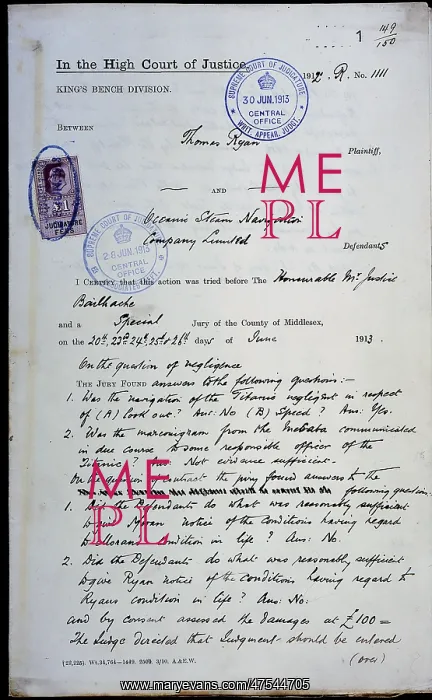 1 149
150
In the High Court of Justice. 1912. R. No. 1111
KING'S BENCH DIVISION.
SUPREME COURT OF JUDICATURE
30 JUN.1913
CENTRAL
OFFICE
WRIT, APPEAR, JUDGT.
BETWEEN
Thomas Ryan
Plaintiff,
ME
PL
AND
£1
JUDICATURE
FEES
Oceanic Steam Navigation
Company Limited
Defendants
SUPREME COURT OF JUDICATURE
28 JUN.1913
CENTRAL
OFFICE
I CERTIFY that this action was tried before The Honourable Mr Justice
Bailhache
and a Special Jury of the County of Middlesex,
on the 20th, 23rd 24th, 25th & 26th days of June 1913.
On the question of negligence
THE JURY FOUND answers to the following questions:—
1. Was the navigation of the Titanic negligent in respect
of (A) look out? Ans: No (B) Speed? Ans: Yes.
2. Was the marconigram from the Mesaba communicated
in due course to some responsible officer of the
Titanic? Not evidence sufficient.
the jury found answers to the
following question
ME
PL
1. Did the Defendants do what was reasonably sufficient
Moran notice of the conditions having regard
condition in life? Ans: No.
2. Did the Defendants do what was reasonably sufficient
to give Ryan notice of the conditions having regard to
Ryans condition in life? Ans: No:
and by consent assessed the damages at £100 =
The Judge directed that Judgment should be entered
(over)
(22,225). Wt.34,764—1449. 2500. 3/10. A.& E.W.
www.maryevans.com/47544705